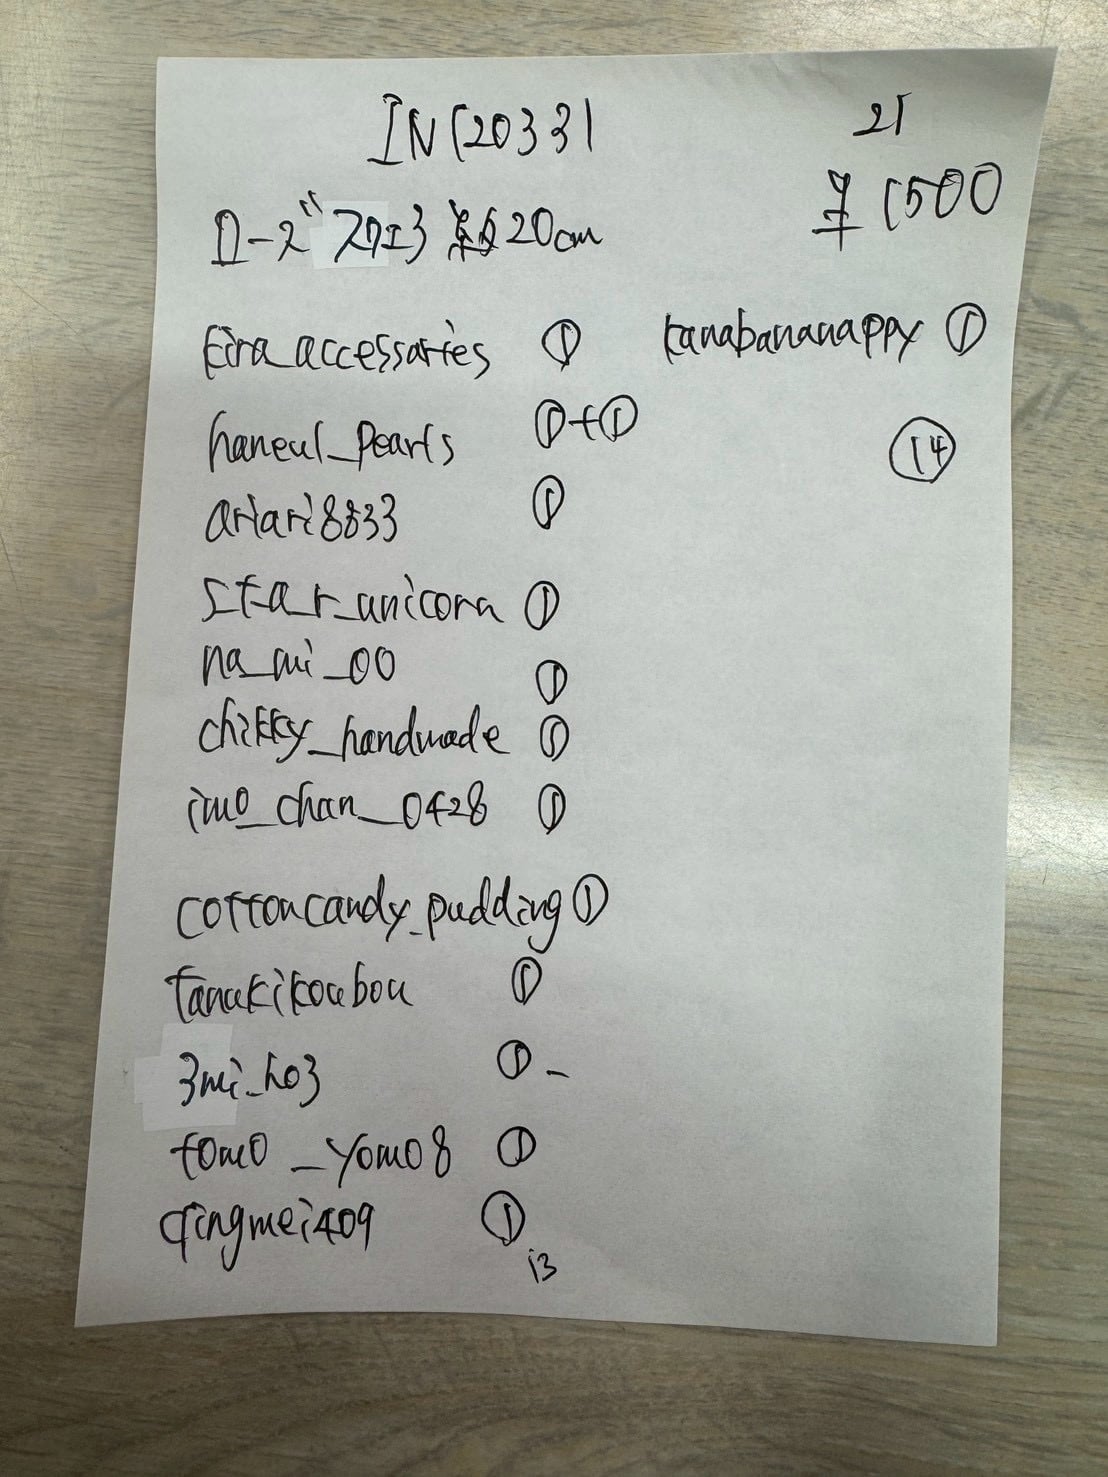 INC20331
21
ローズ スクエア 約20cm
¥1500
kira_accessaries ①
haneul_pearls ①+①
ariari8833 ①
star_unicorn ①
na_mi_00 ①
chikky_handmade ①
imo_chan_0428 ①
cottoncandy_pudding ①
tanukikoubou ①
3mi_ho3 ① -
tomo_yomo8 ①
qingmei409 ①
13
kanabananappy ①
⑭